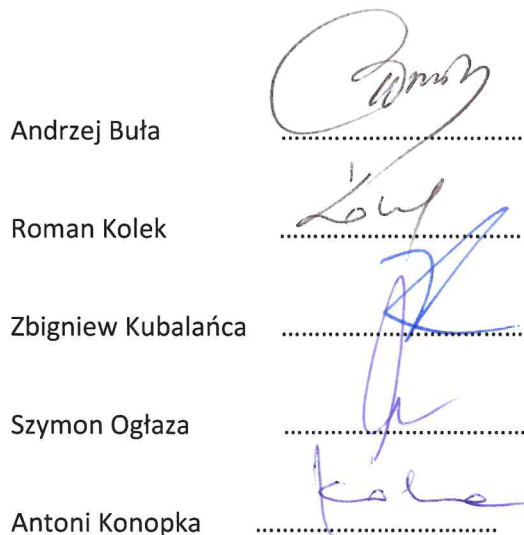 Andrzej Buła ..............................
Roman Kolek ..............................
Zbigniew Kubalańca ..............................
Szymon Ogłaza ..............................
Antoni Konopka ..............................